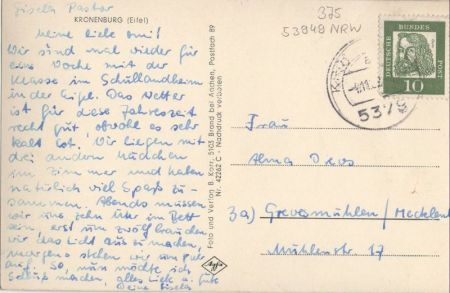 Gisela Pastor
KRONENBURG (Eifel)
Meine liebe Omi!
Wir sind mal wieder für
eine Woche mit der
Klasse im Schullandheim
in der Eifel. Das Wetter
ist für diese Jahreszeit
recht gut, obwohl es sehr
kalt ist. Wir liegen mit
drei andern Mädchen
im Zimmer und haben
natürlich viel Spaß zu-
sammen. Abends müssen
wir uns zehn Uhr im Bett
sein, erst um zwölf brauchen
wir das Licht aus zu machen,
morgens stehen wir um
auf. So, nun möchte ich
Schluß machen, alles Liebe u. Gute
Deine Gisela
Foto und Verlag B. Korr, 5105 Brand bei Aachen, Postfach 89
Nr. 42262 C - Nachdruck verboten
Agfa
375
53949 NRW
DEUTSCHE BUNDESPOST
10
5379
Frau
Alma Devs
3a) Grevesmühlen / Mecklenb
Mühlenstr. 17